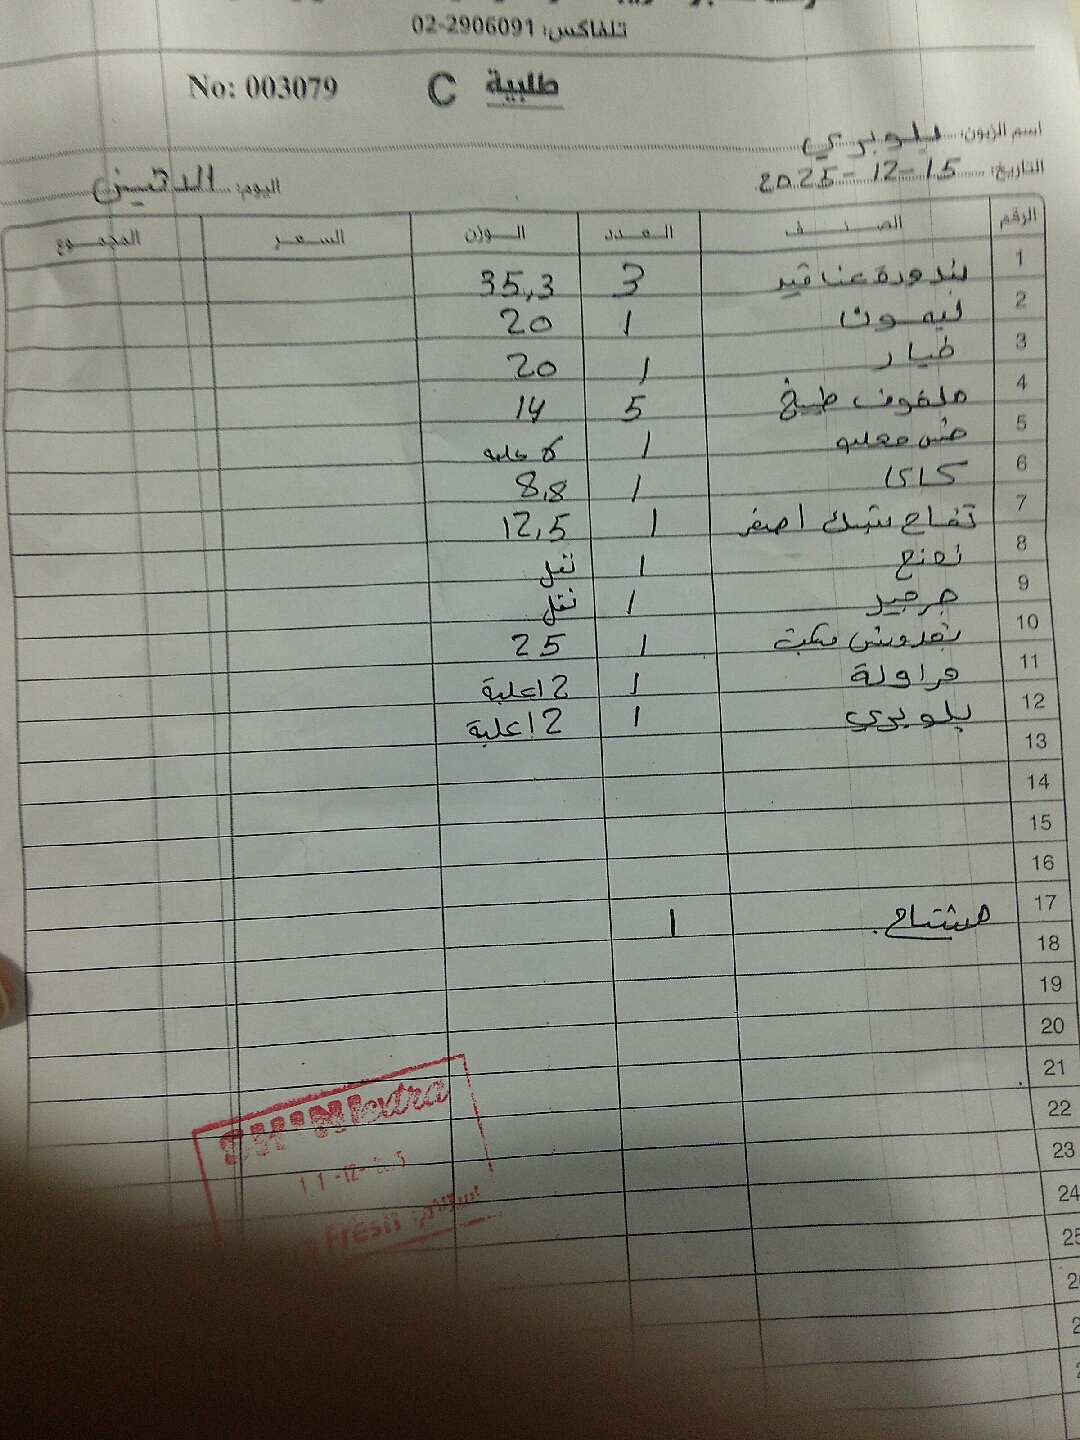 تلفاكس: 02-2906091
No: 003079 C طلبية
اسم الزبون: بلوبري
التاريخ: 15-12-2025 اليوم: الاثنين
الرقم الصنف العدد الوزن السعر المجموع
1 بندورة عناقيد 3 35,3
2 ليمون 1 20
3 خيار 1 20
4 ملفوف طبيخ 5 14
5 خس معلب 1 علبه
6 كاكا 1 8,8
7 تفاح ستيك اصفر 1 12,5
8 نعنع 1
9 جرجير 1
10 بقدونس مكبت 1 25
11 فراولة 1 12 علبة
12 بلوبري 1 12 علبة
13
14
15
16
17 مشتاح 1
18
19
20
21
22
23
24
25
SH*NIextra
Fresh